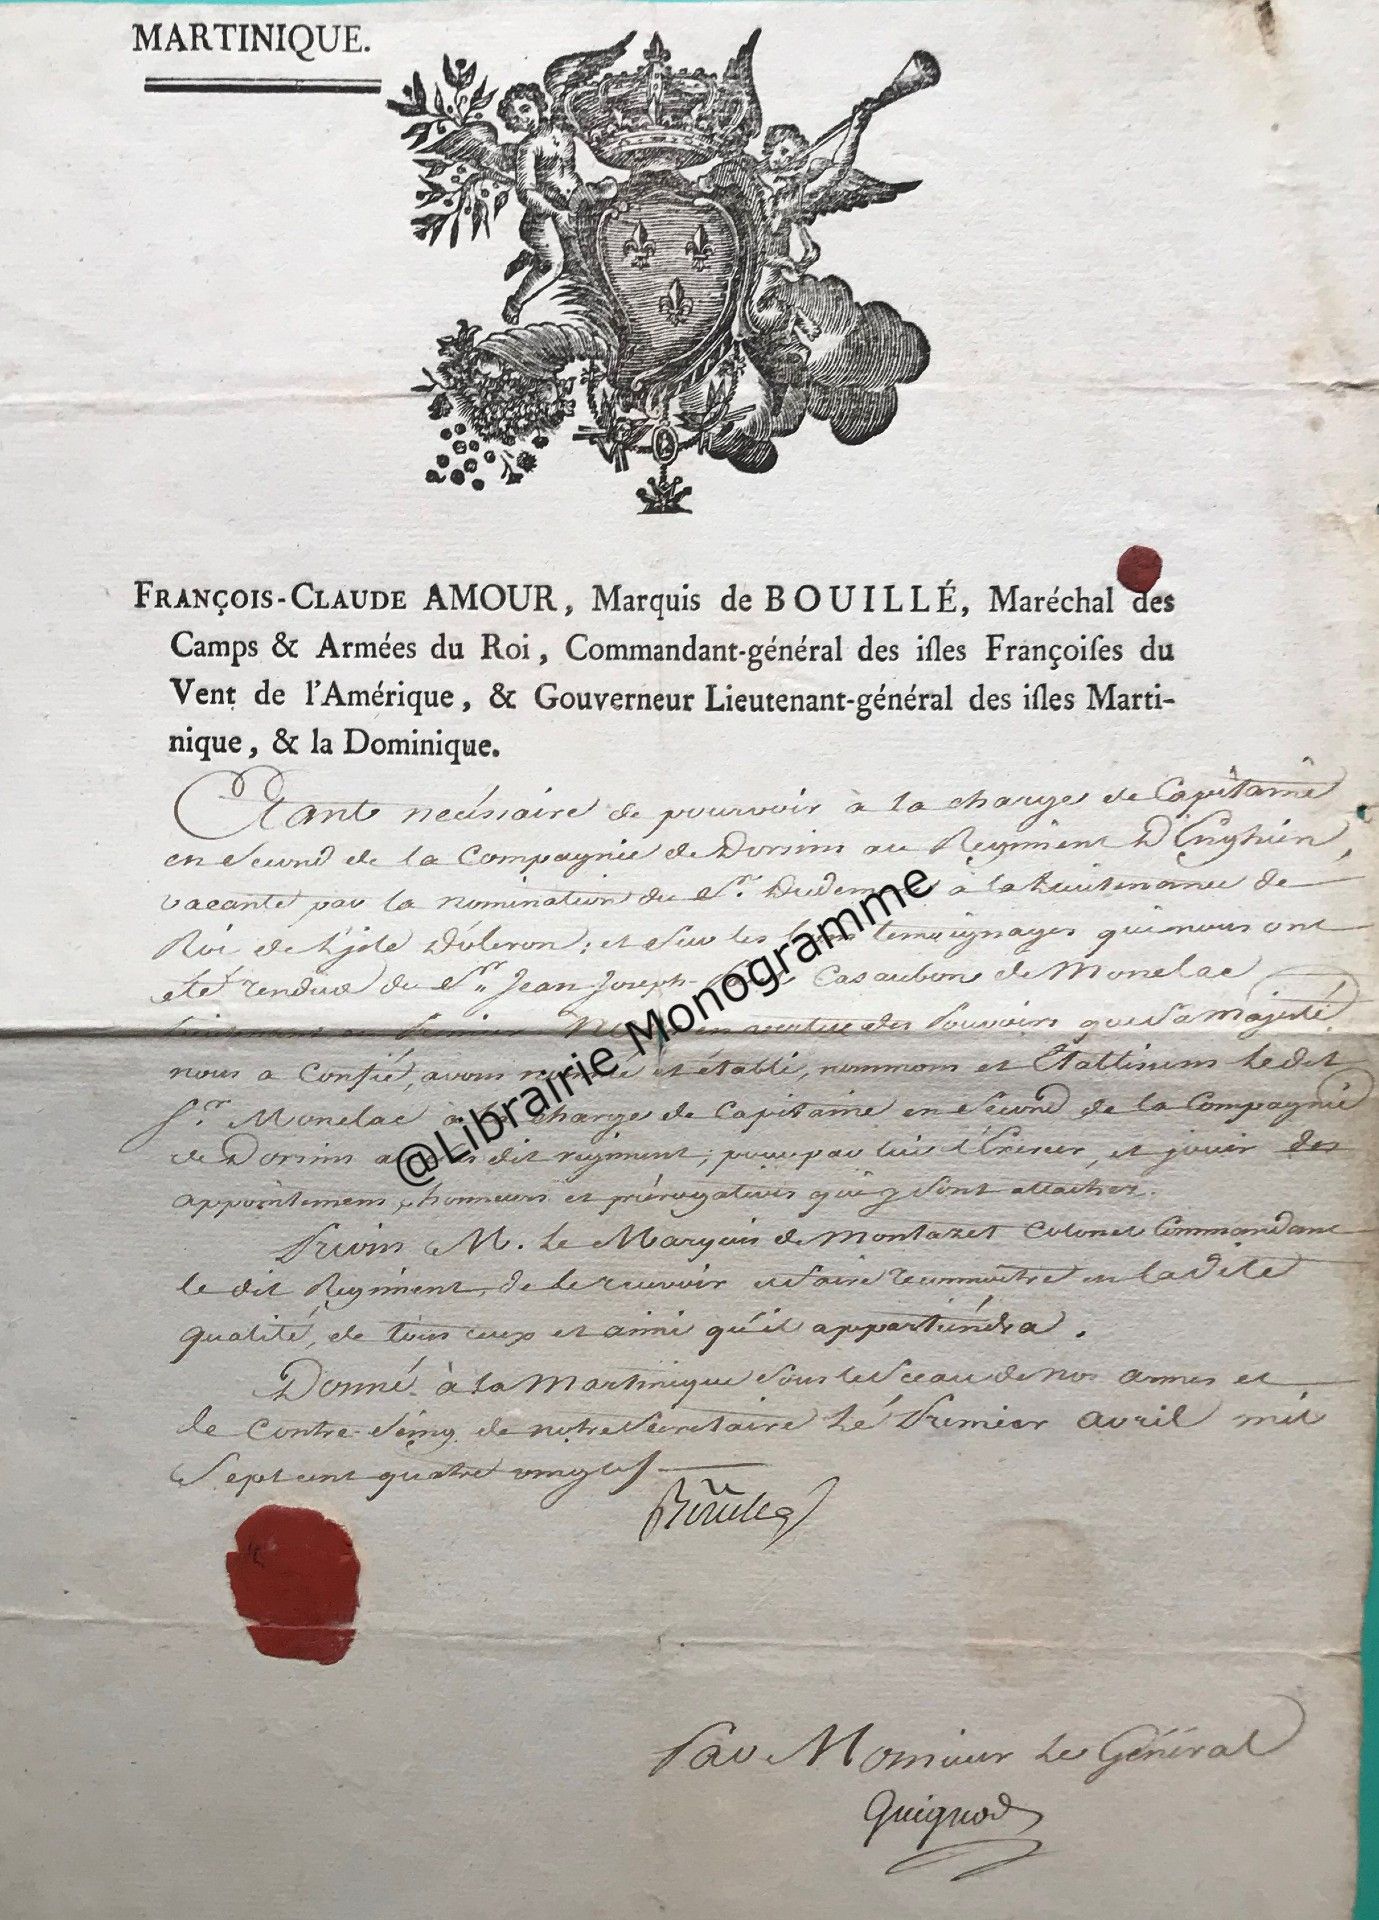 MARTINIQUE.
FRANÇOIS-CLAUDE AMOUR, Marquis de BOUILLÉ, Maréchal des
Camps & Armées du Roi, Commandant-général des iſles Françoiſes du
Vent de l'Amérique, & Gouverneur Lieutenant-général des iſles Marti-
nique, & la Dominique.
Etant nécéssaire de pourvoir à la charge de Capitaine
en Second de la Compagnie de Dorsins au Regiment D'Enghien,
vacante par la nomination du Sr. à la Lieutenance de
Roi de L'jsle D'oleron; et Sur les bons temoignages qui nous ont
eté rendus du Sr. Jean Joseph Casaubon de Monelac
en vertu des Pouvoirs que Sa Majesté
nous a Confié, avons nommé et établi, nommons et Etablissons Ledit
Sr. Monelac à la charge de Capitaine en Second de la Compagnie
de Dorsins au dit regiment; pour par lui l'Exercer, et jouir des
appointemens, honneurs et prérogatives qui y Sont attachés.
Prions M. Le Marquis de Montazet Colonel Commandant
le dit Regiment, de Le recevoir et faire reconnoitre en Ladite
qualité, de tous ceux et ainsi qu'il appartiéndra.
Donné à La Martinique Sous le Sceau de nos armes et
le Contre-Seing de notre Secretaire Le Premier avril mil
Sept cent quatre vingts
Bouillé
Par Monsieur Le Général
Guignod
@Librairie Monogramme